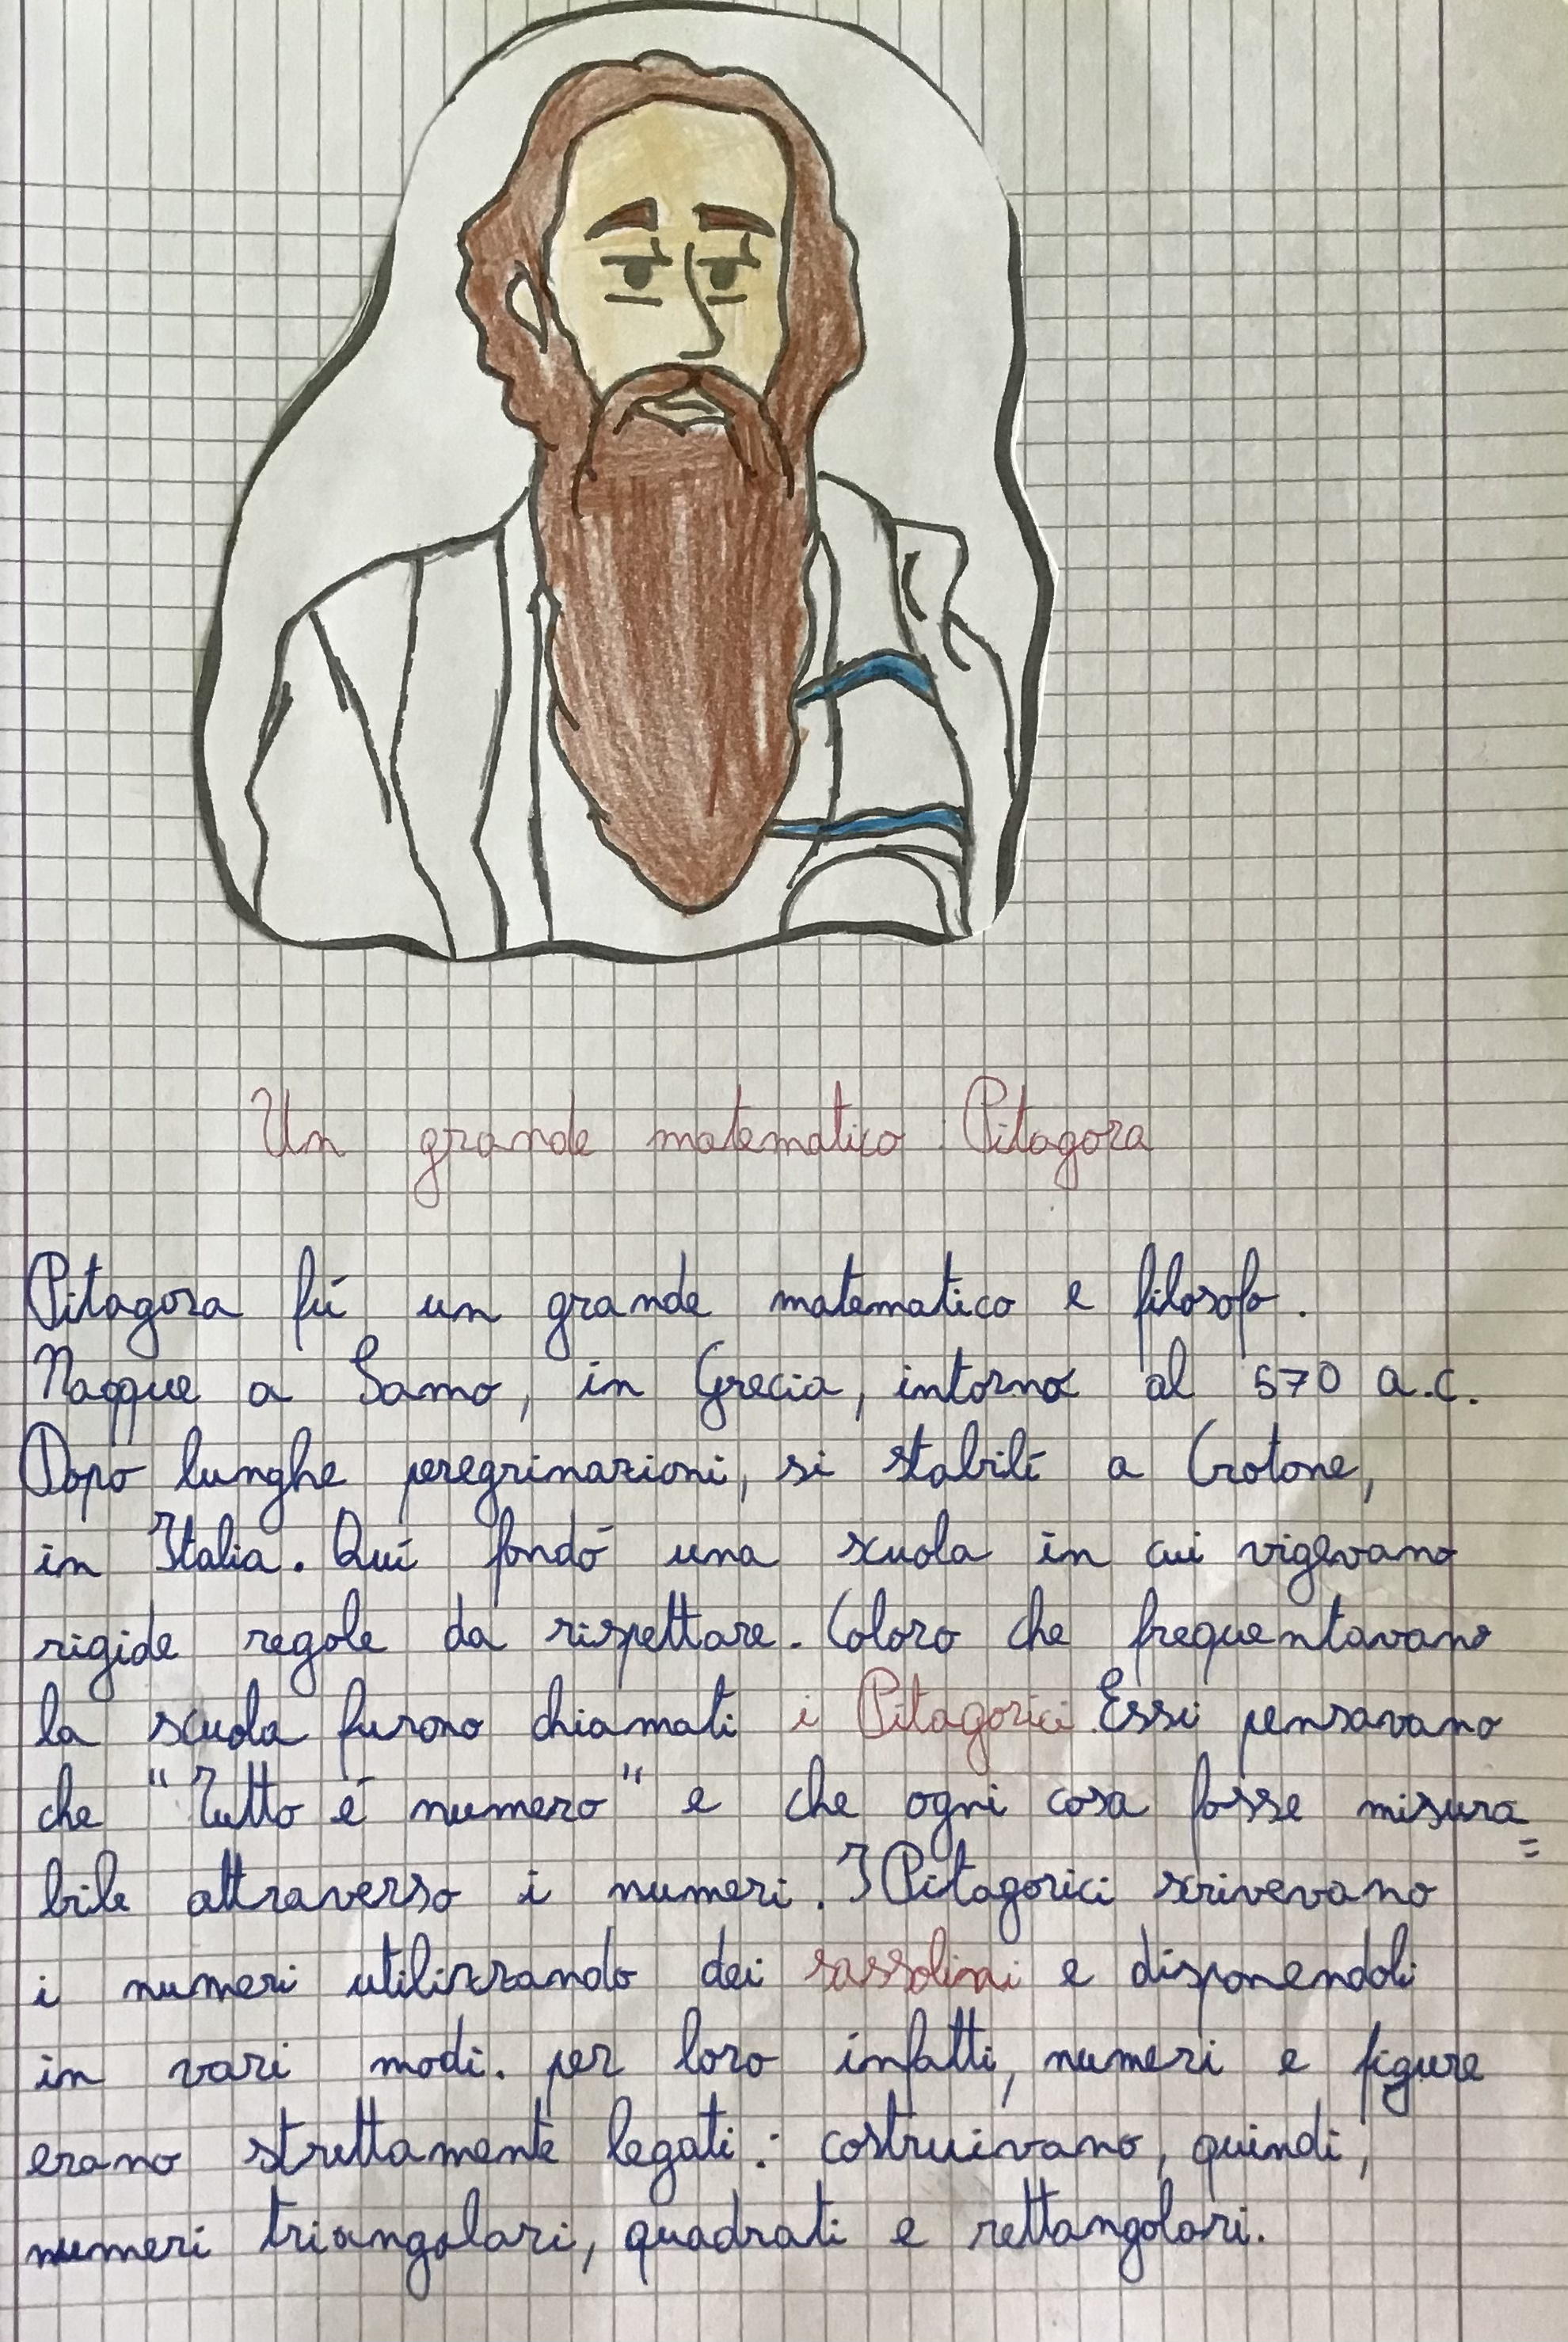 Un grande matematico: Pitagora
Pitagora fú un grande matematico e filosofo.
Nacque a Samo, in Grecia, intorno al 570 a.c.
Dopo lunghe peregrinazioni, si stabilí a Crotone,
in Italia. Quí fondó una scuola in cui vigevano
rigide regole da rispettare. Coloro che frequentavano
la scuola furono chiamati i Pitagorici. Essi pensavano
che "Tutto é numero" e che ogni cosa fosse misura=
bile attraverso i numeri. I Pitagorici scrivevano
i numeri utilizzando dei sassolini e disponendoli
in vari modi. per loro infatti, numeri e figure
erano strettamente legati: costruivano, quindi,
numeri triangolari, quadrati e rettangolari.